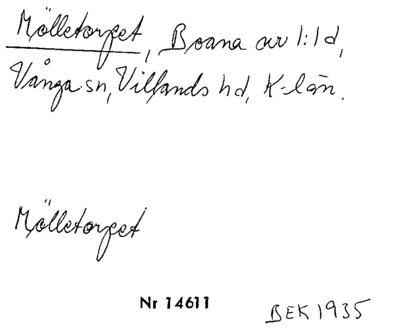 Mölletorpet, Boana av 1:1 d,
Vånga sn, Villands hd, K-län.
Mölletorpet
Nr 14611
BEK 1935